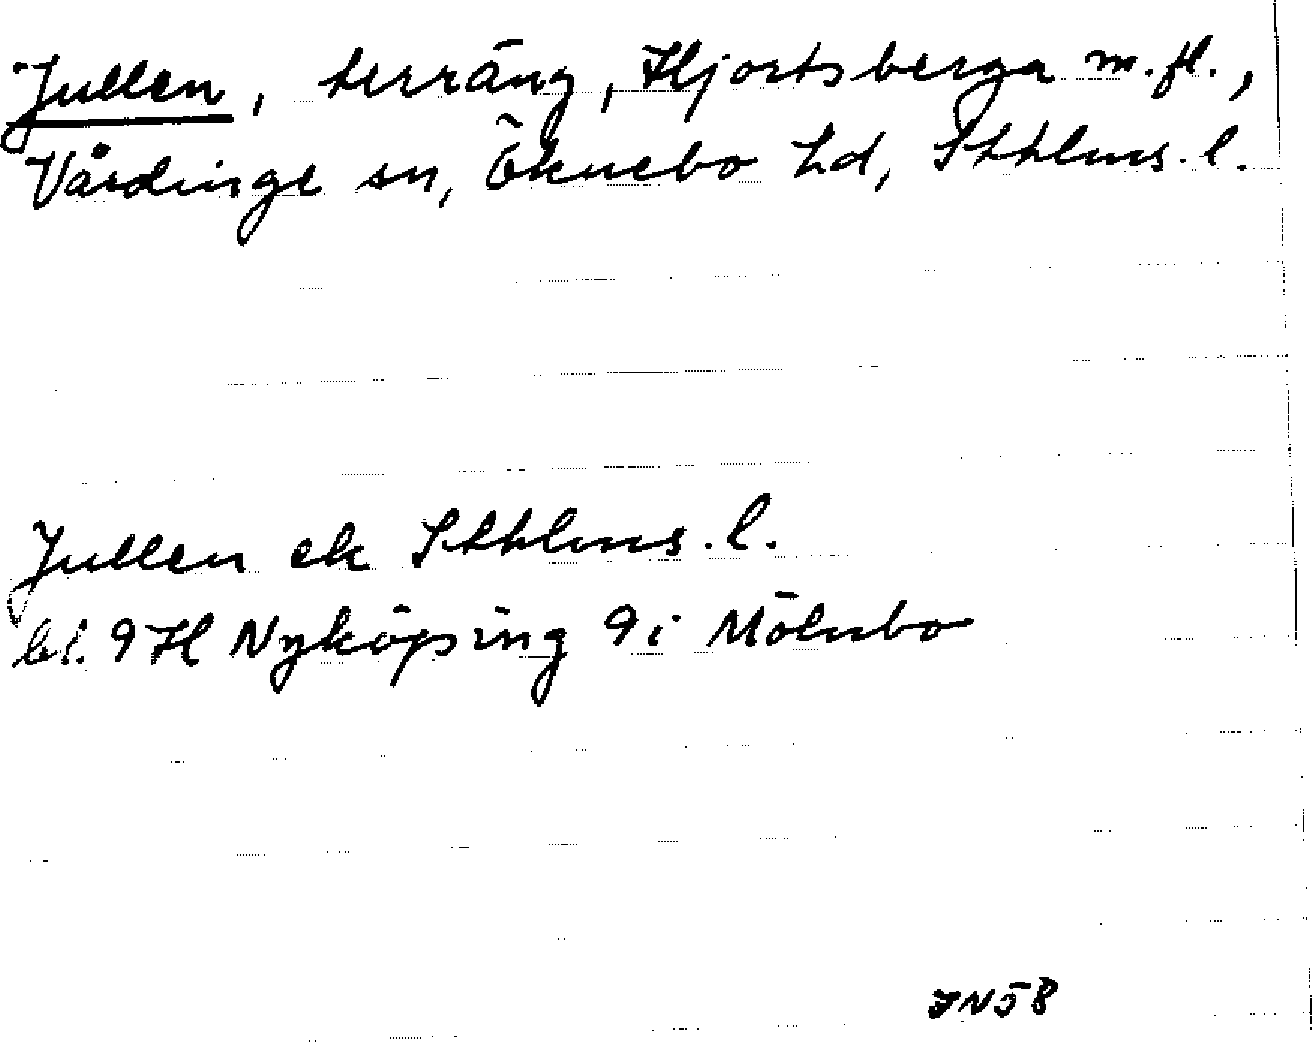 Jullen, terräng, Hjortsberga m.fl.,
Vårdinge sn, Öknebo hd, Sthlms.l.
Jullen ek Sthlms.l.
bl. 9H Nyköping 9i Mölnbo
JN58